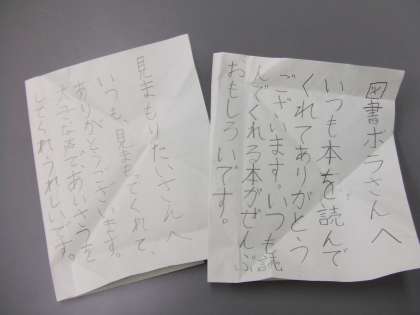 図書ボラさんへ
いつも本を読んで
くれてありがとう
ございます。いつも読
んでくれる本がぜんぶ
おもしろいです。
見まもりたいさんへ
いつも、見まもってくれて、
ありがとうございます。
大きな声であいさつを
してくれ、うれしいです。